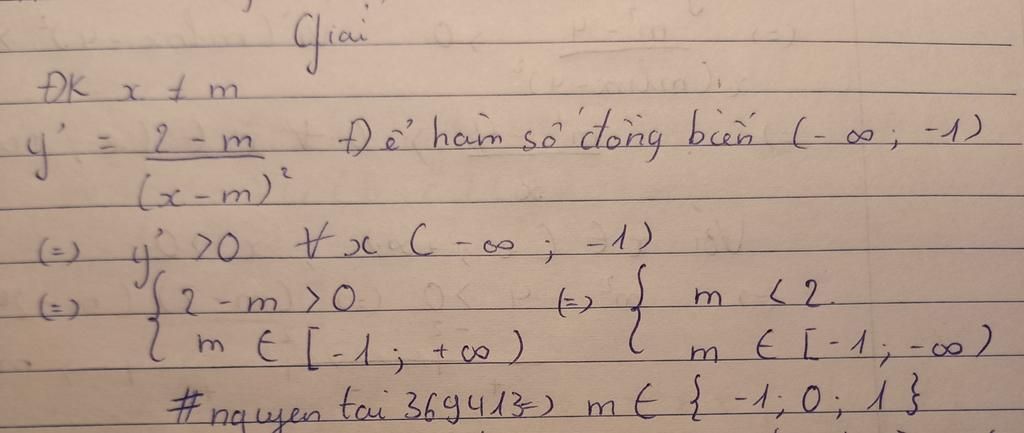 Giải
ĐK x ≠ m
y' = (2 - m)/(x - m)² Để hàm số đồng biến (- ∞ ; -1)
(=) y' > 0 ∀ x ( - ∞ ; -1)
(=) { 2 - m > 0 (=) { m < 2
m ∈ [ -1 ; + ∞ ) m ∈ [ -1 ; - ∞ )
#nguyen tai 369413=) m ∈ { -1 ; 0 ; 1 }